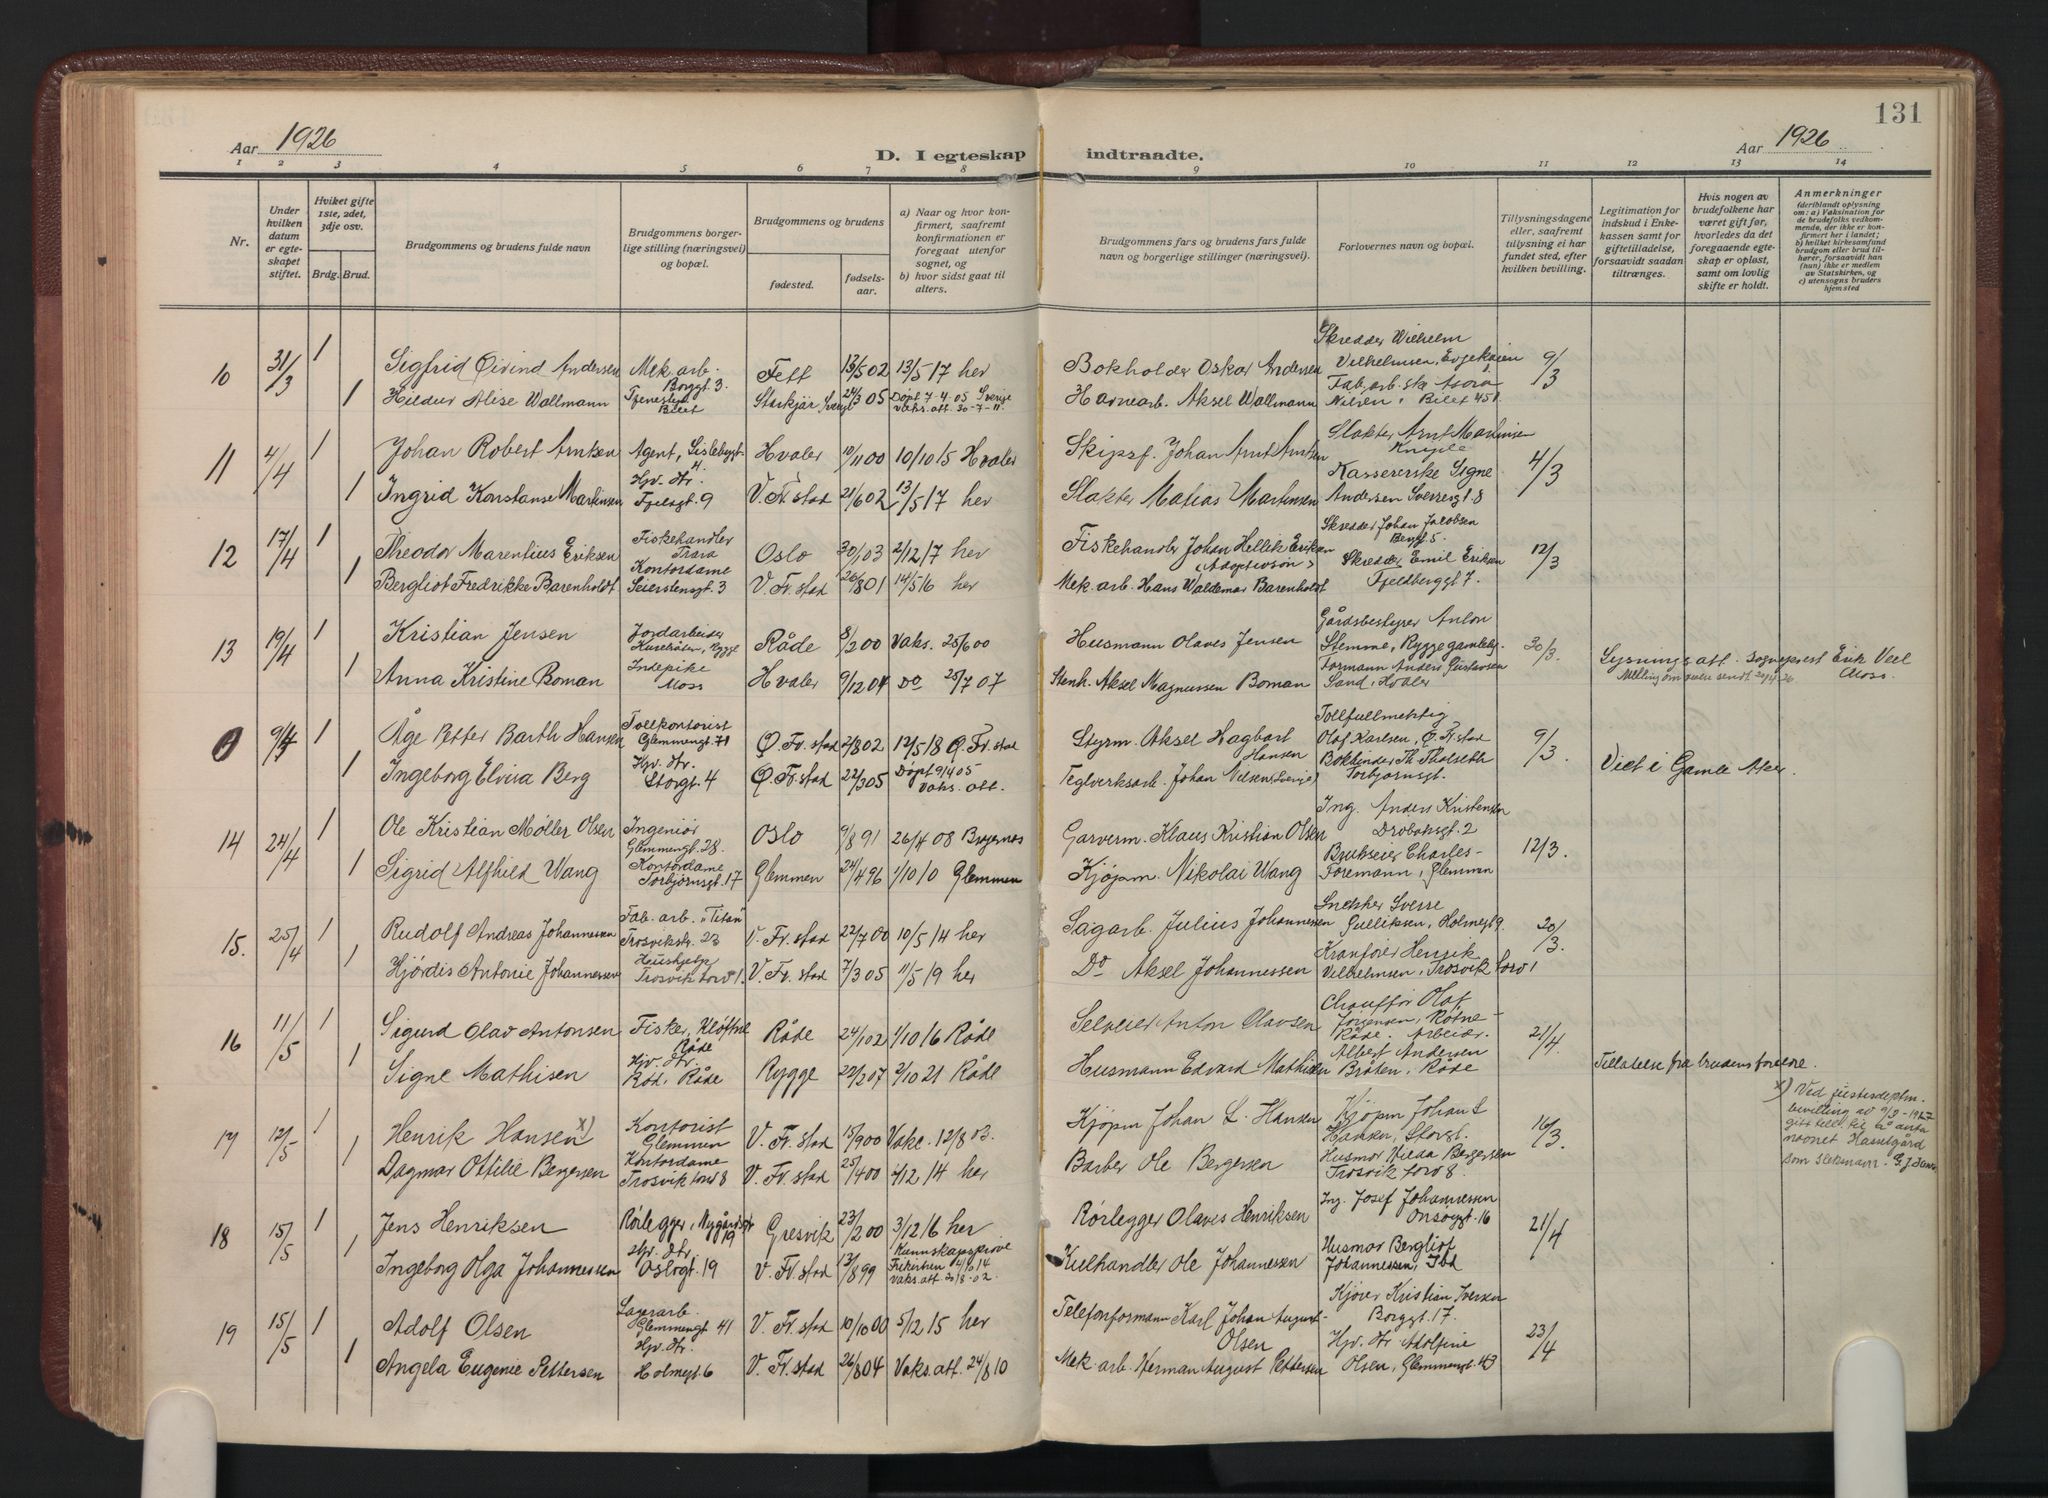 131
Aar 1926
D. I egteskap indtraadte.
Aar 1926
1 2 3 4 5 6 7 8 9 10 11 12 13 14
Nr.
Under hvilken datum er egteskapet stiftet.
Hviket gifte 1ste, 2det, 3dje osv.
Brdg. Brud.
Brudgommens og brudens fulde navn
Brudgommens borgerlige stilling (næringsvei) og bopæl.
Brudgommens og brudens
fødested.
fødsels-aar.
a) Naar og hvor konfirmert, saafremt konfirmationen er foregaat utenfor sognet, og
b) hvor sidst gaat til alters.
Brudgommens fars og brudens fars fulde navn og borgerlige stillinger (næringsvei).
Forlovernes navn og bopæl.
Tillysningsdagene eller, saafremt tillysning ei har fundet sted, efter hvilken bevilling.
Legitimation for indskud i Enkekassen samt for giftetilladelse, forsaavidt saadan tiltrænges.
Hvis nogen av brudefolkene har været gift før, hvorledes da det foregaaende egteskap er opløst, samt om lovlig skifte er holdt.
Anmerkninger
(deriblandt oplysning om: a) Vaksination for de brudefolks vedkommende, der ikke er konfirmert her i landet; b) hvilket kirkesamfund brudgom eller brud tilhører, forsaavidt han (hun) ikke er medlem av Statskirken, og c) utensogns bruders hjemsted
10 31/3 1 Sigfrid Øivind Andersen Mek. arb. Borggt. 3. Fett 13/5 02 13/5 17 her Bokholder Oskar Andersen Skredder Wilhelm Vilhelmsen, Evjekaien 9/3
1 Hildur Alise Wallmann Tjenestep. Bilet 24/3 05 Døpt 7-4-05 Sverige Vaks. att. 30-7-11. Harnearb. Aksel Wallmann Fab. arb. ske Nilsen, Bilet 451
11 4/4 1 Johan Robert Arntsen Agent, Lislebygt. 4. Hvaler 10/11 00 10/10 15 Hvaler Skipsf. Johan Arnt Arntsen Slakter Arnt Martinsen 4/3
1 Ingrid Konstanse Martinsen Hjv. dtr. Fjelsgt. 9 V. Fr. stad 21/6 02 13/5 17 her Slakter Matias Martinsen Kassererske Signe Andersen Sverresgt. 8
12 17/4 1 Theodor Marentius Eriksen Fiskehandler Trara Oslo 30/1 03 2/12 17 her Fiskehandler Johan Hellik Eriksen "Adoptivsøn" Skredder Johan Jacobsen Berggt 5. 12/3
1 Bergliot Fredrikke Barenholdt Kontordame Seierstensgt. 3 V. Fr. stad 26/8 01 14/5 16 her Mek. arb. Hans Waldemar Barenholdt Skredder Emil Eriksen Fjeldberggt 7.
13 19/4 1 Kristian Jensen Jordarbeider Rygge Råde 8/2 00 Vaks. 25/6 00 Husmann Olaves Jensen Gårdsbestyrer Anton Stemme, Rygge 30/3. Lysningsatt. sogneprest Erik Veel Moss.
1 Anna Kristine Boman Indepike Moss Hvaler 9/12 04 Do 25/7 07 Stenh. Aksel Magnussen Boman Formann Anders Gustavsen Sand, Hvaler
9/4 1 Åge Petter Barth Hansen Tollkontorist Glemmengt. 71 Ø. Fr. stad 2/8 02 12/5 18 Ø. Fr. stad Styrm. Aksel Hagbart Hansen Tollfullmektig Olaf Karlsen, Ø. Fr. stad 9/3. Viet i Gamle Aker.
1 Ingeborg Elvira Berg Hjv. dtr. Storgt. 4 Ø. Fr. stad 22/3 05 Døpt 9/4 05 Vaks. att. Teglverksarb. Johan Nilsen Bokbinder Th. Tholseth Torbjørnsgt.
14 24/4 1 Ole Kristian Møller Olsen Ingeniør Glemmengt. 28. Oslo 9/8 91 26/4 08 Bragernes Garverm. Klaus Kristian Olsen Ing. Anders Kristensen Drøbaksgt. 2 12/3.
1 Sigrid Alfhild Wang Kontordame Torbjørnsgt. 17 Glemmen 24/4 96 1/10 10 Glemmen Kjøpm. Nikolai Wang Brukseier Charles Foremann, Glemmen
15. 25/4 1 Rudolf Andreas Johannessen Fab. arb. "Titan" Trosvikstr. 23 V. Fr. stad 22/7 00 10/5 14 her Sagarb. Julius Johannessen Snekker Sverre Gulliksen, Holmegt 9. 20/3.
1 Hjørdis Antonie Johannessen Hushjelp Trosvik torv 1. V. Fr. stad 7/3 05 11/5 19 her Do Aksel Johannessen Kranfører Henrik Vilhelmsen, Trosvik torv 1
16 11/5 1 Sigurd Olav Antonsen Fisker, Kløftne Råde Råde 24/1 02 1/10 16 Råde Selveier Anton Olavsen Chauffør Olaf Jørgensen, Råde. Arbeier. 21/4.
1 Signe Mathisen Hjv. dtr. Rød. Råde Rygge 22/2 07 2/10 21 Råde Husmann Edvard Mathisen Albert Andersen Bråten, Råde Tillatelse fra brudens foreldre.
17 12/5 1 Henrik Hansen x) Kontorist Glemmen V. Fr. stad 15/9 00 Vakc. 12/8 03. Kjøpm Johan L. Hansen Kjøpm Johan L Hansen, Storgt. 16/3.
1 Dagmar Ottilie Bergersen Kontordame Trosvik torv 8 V. Fr. stad 25/4 00 2/12 14 her Barber Ole Bergersen Husmor Hilda Bergersen Trosvik torv 8.
x) Ved justisdeptm. bevilling av 9/3-1927 gitt till. til å anta navnet Hasselgård som slektsnavn.
18 15/5 1 Jens Henriksen Rørlegger, Nygårdsgt 19 Gresvik 23/2 00 3/12 16 her Rørlegger Olaves Henriksen Ing. Josef Johannessen Onsøygt. 16 21/4
1 Ingeborg Olga Johannessen Hjv. dtr. Oslogt. 19 V. Fr. stad 13/8 99 Kunnskapsprøve Frikirken 4/10 14 Vaks. att. 20/8-02. Kulhandler Ole Johannessen Husmor Bergliot Johannessen, Ibd
19 15/5 1 Adolf Olsen Lagerarb. Glemmengt 41 V. Fr. stad 10/10 00 5/12 15 her Telefonformann Karl Johan August Olsen Kjører Kristian Iversen Borggt. 17. 23/4
1 Angela Eugenie Pettersen Hjv. dtr. Holmegt. 6 V. Fr. stad 26/8 04 Vaks. att. 24/8 10 Mek. arb. Herman August Pettersen Hjv. dtr Adolfine Olsen, Glemmengt. 43